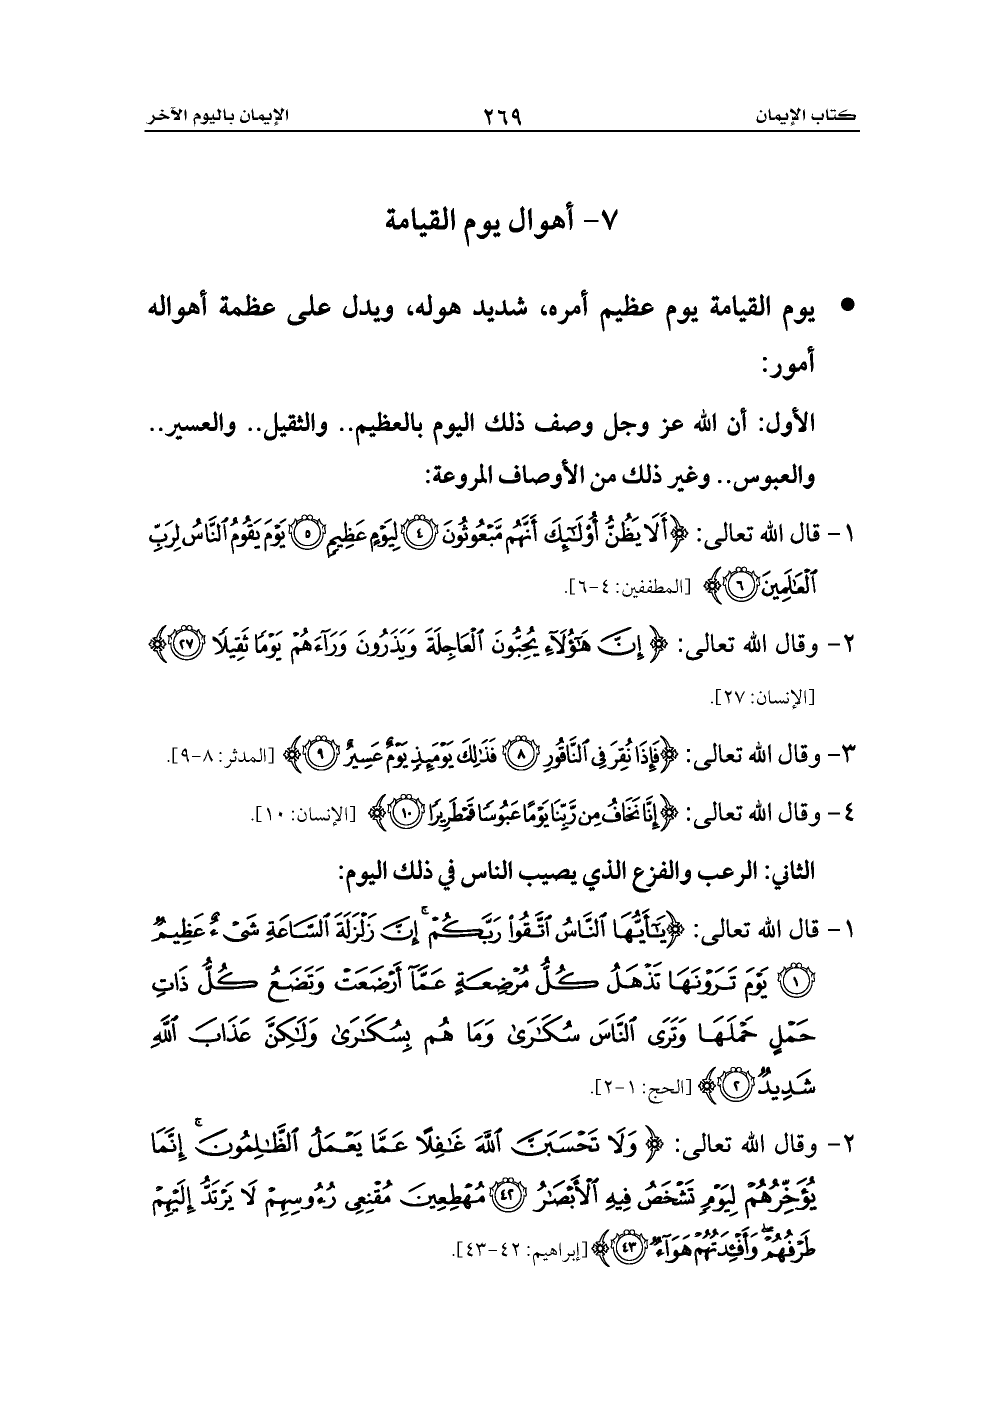 كتاب الإيمان ٢٦٩ الإيمان باليوم الآخر
٧- أهوال يوم القيامة
● يوم القيامة يوم عظيم أمره، شديد هوله، ويدل على عظمة أهواله
أمور:
الأول: أن الله عز وجل وصف ذلك اليوم بالعظيم.. والثقيل.. والعسير..
والعبوس.. وغير ذلك من الأوصاف المروعة:
١- قال الله تعالى: ﴿أَلَا يَظُنُّ أُوْلَٰٓئِكَ أَنَّهُم مَّبْعُوثُونَ ٤ لِيَوْمٍ عَظِيمٍ ٥ يَوْمَ يَقُومُ ٱلنَّاسُ لِرَبِّ
ٱلْعَٰلَمِينَ ٦﴾ [المطففين: ٤-٦].
٢- وقال الله تعالى: ﴿إِنَّ هَٰٓؤُلَآءِ يُحِبُّونَ ٱلْعَاجِلَةَ وَيَذَرُونَ وَرَآءَهُمْ يَوْمًا ثَقِيلًا ٢٧﴾
[الإنسان: ٢٧].
٣- وقال الله تعالى: ﴿فَإِذَا نُقِرَ فِى ٱلنَّاقُورِ ٨ فَذَٰلِكَ يَوْمَئِذٍ يَوْمٌ عَسِيرٌ ٩﴾ [المدثر: ٨-٩].
٤- وقال الله تعالى: ﴿إِنَّا نَخَافُ مِن رَّبِّنَا يَوْمًا عَبُوسًا قَمْطَرِيرًا ١٠﴾ [الإنسان: ١٠].
الثاني: الرعب والفزع الذي يصيب الناس في ذلك اليوم:
١- قال الله تعالى: ﴿يَٰٓأَيُّهَا ٱلنَّاسُ ٱتَّقُوا۟ رَبَّكُمْ ۚ إِنَّ زَلْزَلَةَ ٱلسَّاعَةِ شَىْءٌ عَظِيمٌ
١ يَوْمَ تَرَوْنَهَا تَذْهَلُ كُلُّ مُرْضِعَةٍ عَمَّآ أَرْضَعَتْ وَتَضَعُ كُلُّ ذَاتِ
حَمْلٍ حَمْلَهَا وَتَرَى ٱلنَّاسَ سُكَٰرَىٰ وَمَا هُم بِسُكَٰرَىٰ وَلَٰكِنَّ عَذَابَ ٱللَّهِ
شَدِيدٌ ٢﴾ [الحج: ١-٢].
٢- وقال الله تعالى: ﴿وَلَا تَحْسَبَنَّ ٱللَّهَ غَٰفِلًا عَمَّا يَعْمَلُ ٱلظَّٰلِمُونَ ۚ إِنَّمَا
يُؤَخِّرُهُمْ لِيَوْمٍ تَشْخَصُ فِيهِ ٱلْأَبْصَٰرُ ٤٢ مُهْطِعِينَ مُقْنِعِى رُءُوسِهِمْ لَا يَرْتَدُّ إِلَيْهِمْ
طَرْفُهُمْ ۖ وَأَفْـِٔدَتُهُمْ هَوَآءٌ ٤٣﴾ [إبراهيم: ٤٢-٤٣].